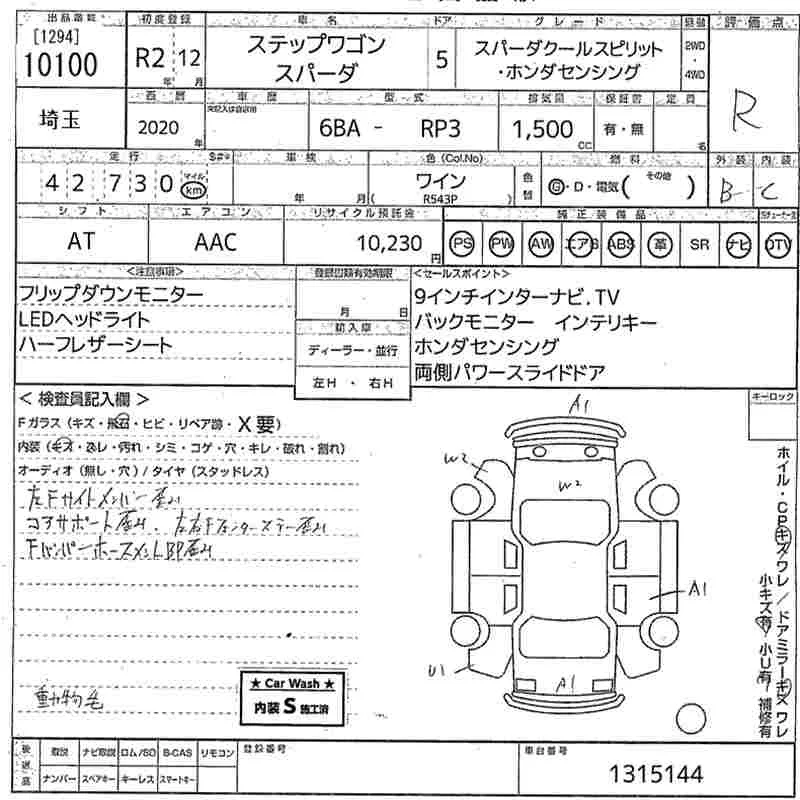 出品番号 初度登録 車名 ドア グレード 駆動 評価点
[1294]
10100 R2 年 12 月 ステップワゴン スパーダ 5 スパーダクールスピリット ・ホンダセンシング 2WD ・ 4WD R
埼玉 西暦 車歴 型式 排気量 保証書 定員
2020 年 6BA - RP3 1,500 CC 有・無 名
走行 車検 色 (Col.No) 燃料 外装 内装
42,730 マイル km 年 月 ワイン ( R543P ) 色替 G・D・電気( その他 ) B- C
シフト エアコン リサイクル預託金 純正装備品
AT AAC 10,230 円 PS PW AW エアB ABS 革 SR ナビ DTV
<注意事項> 登録書類有効期限 <セールスポイント>
フリップダウンモニター 9インチインターナビ.TV
LEDヘッドライト 月 日 バックモニター インテリキー
ハーフレザーシート 輸入車 ホンダセンシング
ディーラー・並行 両側パワースライドドア
左H ・ 右H
< 検査員記入欄 > キーロック
Fガラス (キズ・飛石・ヒビ・リペア跡・X要)
内装 (キズ・スレ・汚れ・シミ・コゲ・穴・キレ・破れ・割れ)
オーディオ (無し・穴) / タイヤ (スタッドレス)
左Fサイドメンバー歪み
コアサポート歪み、左右Fインナーステー歪み
動物毛
A1
W2
W2
A1
U1
A1
ホイル・CPキズワレ / ドアミラーキズワレ
小キズ有・小U有・補修有
★ Car Wash ★
内装 S 施工済
後送品 取説 ナビ取説 ロム/SD B-CAS リモコン 登録番号 車台番号
ナンバー スペアキー キーレス スマートキー 1315144